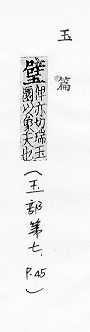 玉篇
璧
俾亦切瑞玉
圜以象天也
(玉部第七. P.45)